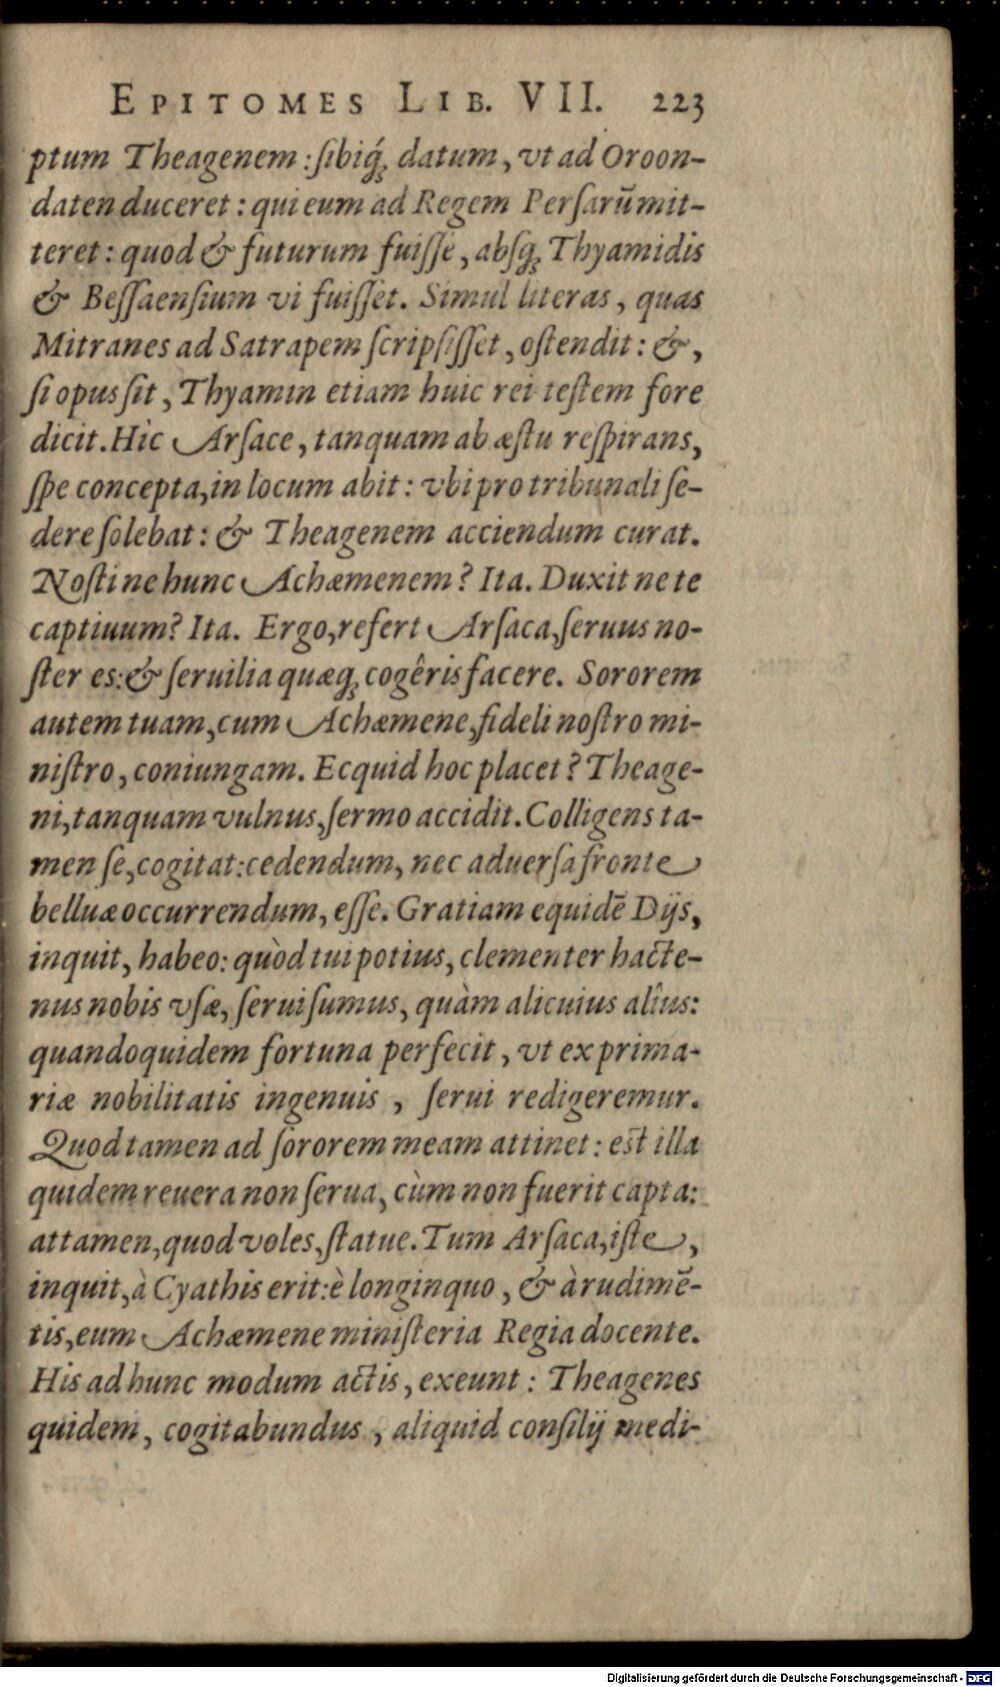 EPITOMES LIB. VII. 223
ptum Theagenem: ſibiq́ꝫ datum, vt ad Oroon-
daten duceret: qui eum ad Regem Perſarū mit-
teret: quod & futurum fuiſſe, abſqꝫ Thyamidis
& Beſſaenſium vi fuiſſet. Simul literas, quas
Mitranes ad Satrapem ſcripſiſſet, oſtendit: &,
ſi opus ſit, Thyamin etiam huic rei teſtem fore
dicit. Hìc Arſace, tanquam ab æſtu reſpirans,
ſpe concepta, in locum abit: vbi pro tribunali ſe-
dere ſolebat: & Theagenem acciendum curat.
Noſtine hunc Achæmenem? Ita. Duxitne te
captiuum? Ita. Ergo, refert Arſaca, ſeruus no-
ſter es: & ſeruilia quæqꝫ cogêris facere. Sororem
autem tuam, cum Achæmene, fideli noſtro mi-
niſtro, coniungam. Ecquid hoc placet? Theage-
ni, tanquam vulnus, ſermo accidit. Colligens ta-
men ſe, cogitat: cedendum, nec aduerſa fronte
belluæ occurrendum, eſſe. Gratiam equidē Dijs,
inquit, habeo: quòd tui potius, clementer hacte-
nus nobis vſæ, ſerui ſumus, quàm alicuius alîus:
quandoquidem fortuna perfecit, vt ex prima-
riæ nobilitatis ingenuis, ſerui redigeremur.
Quod tamen ad ſororem meam attinet: est illa
quidem reuera non ſerua, cùm non fuerit capta:
attamen, quod voles, ſtatue. Tum Arſaca, iſte,
inquit, à Cyathis erit: è longinquo, & à rudimē-
tis, eum Achæmene miniſteria Regia docente.
His ad hunc modum actis, exeunt: Theagenes
quidem, cogitabundus, aliquid conſilij medi-
Digitalisierung gefördert durch die Deutsche Forschungsgemeinschaft - DFG